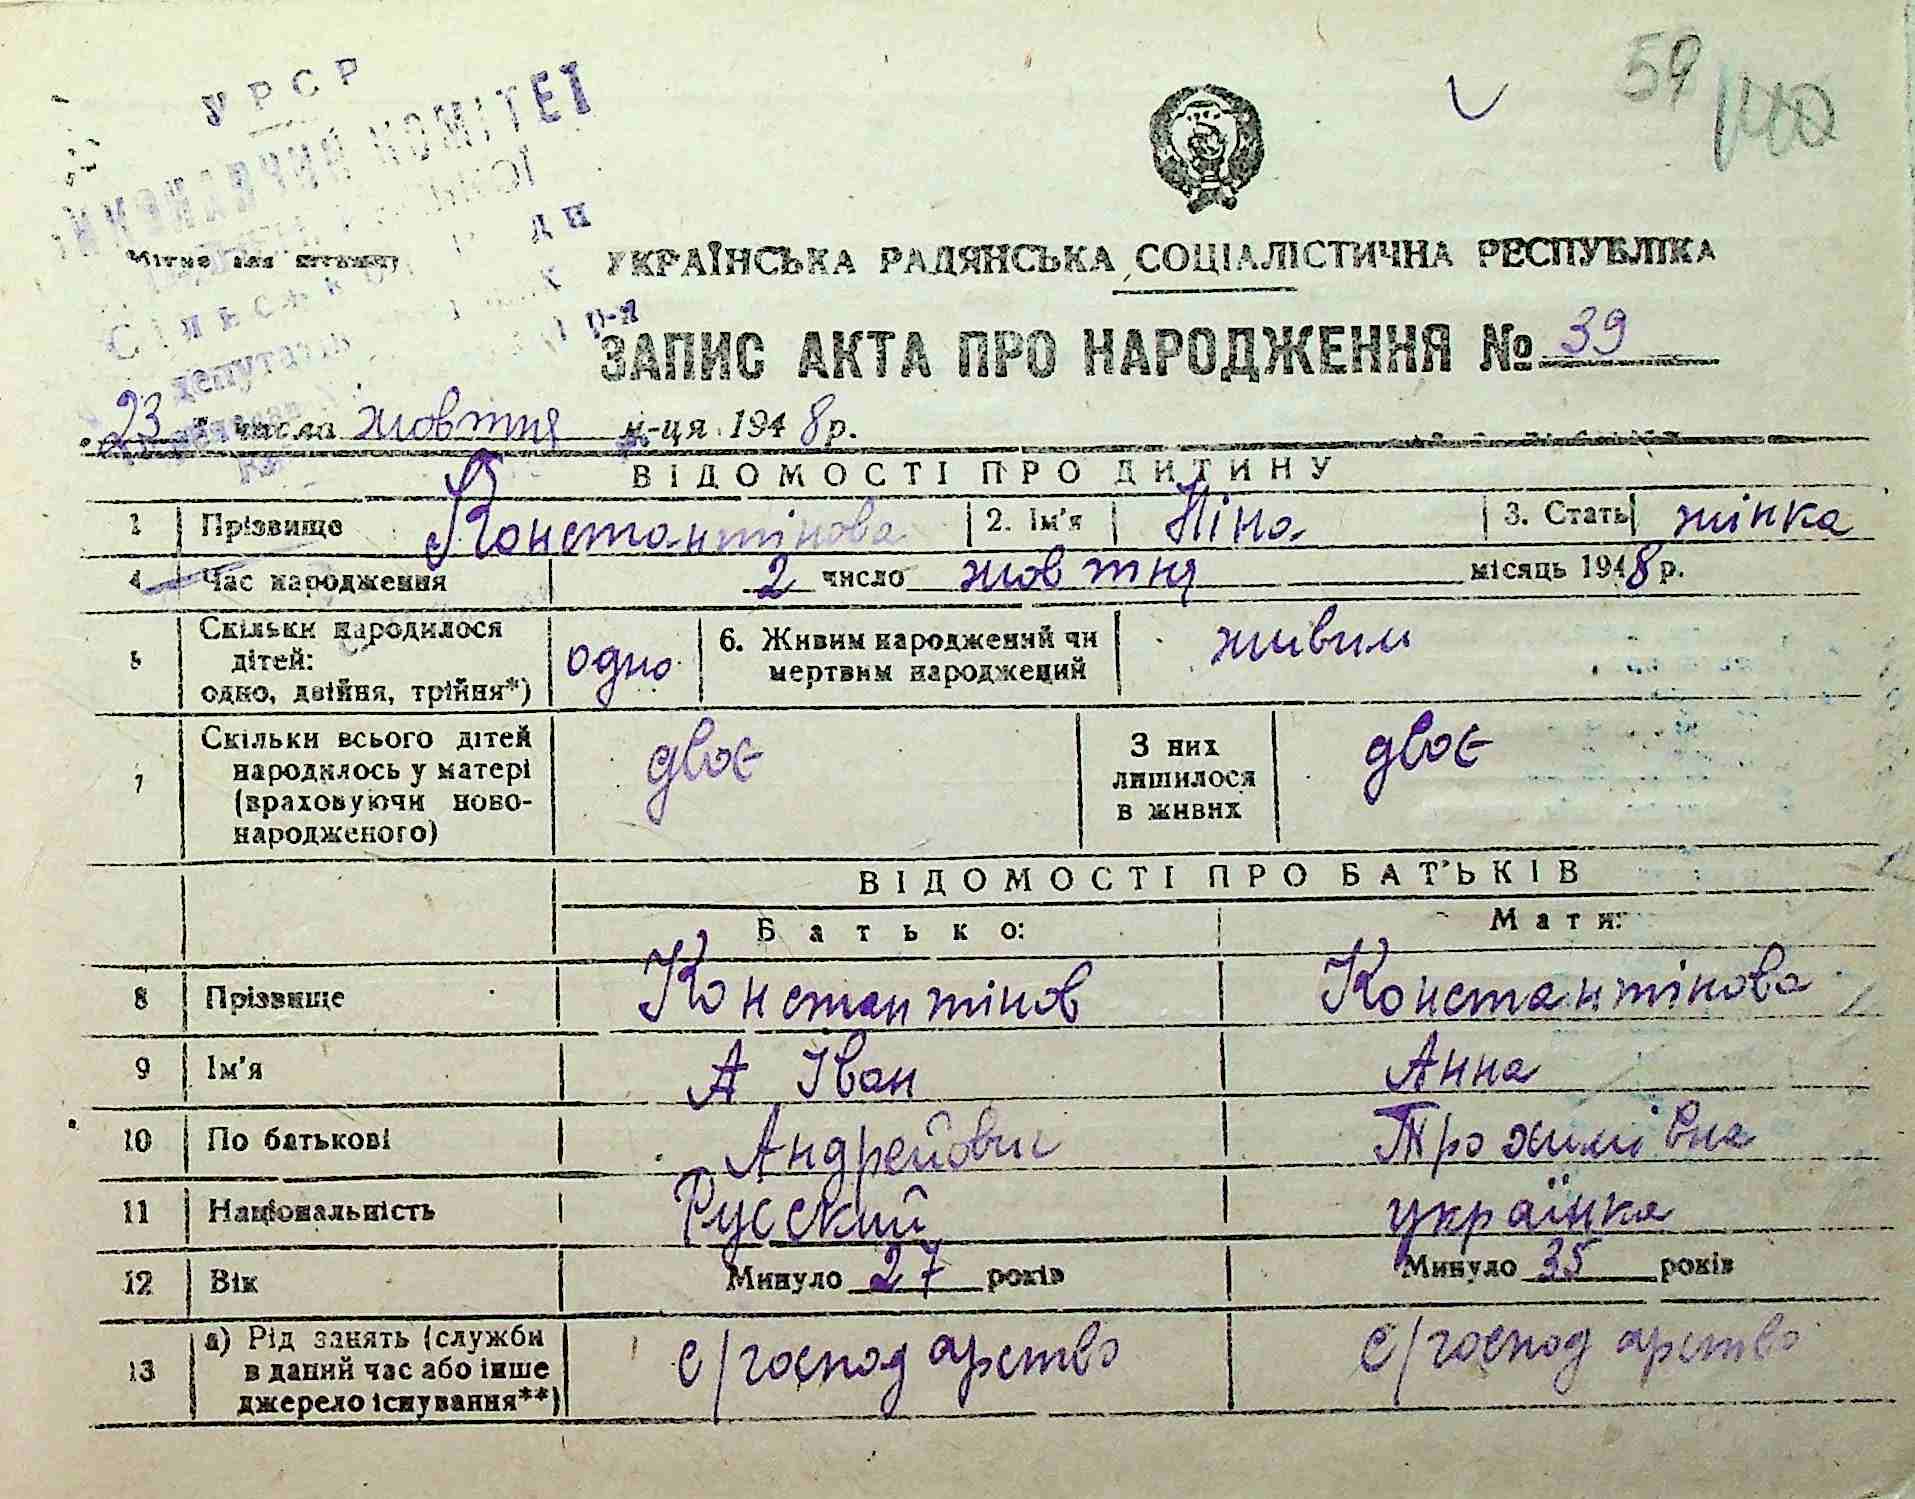 59
140
УРСР
ВИКОНАВЧИЙ КОМІТЕТ
Місце для штампу
УКРАЇНСЬКА РАДЯНСЬКА СОЦІАЛІСТИЧНА РЕСПУБЛІКА
ЗАПИС АКТА ПРО НАРОДЖЕННЯ № 39
23 " числа жовтня м-ця 1948 р.
ВІДОМОСТІ ПРО ДИТИНУ
1 Прізвище Константінова 2. Ім'я Ніна 3. Стать жінка
4 Час народження 2 число жовтня місяць 1948 р.
5 Скільки народилося дітей: одно, двійня, трійня*) одно 6. Живим народжений чи мертвим народжений живим
7 Скільки всього дітей народилось у матері (враховуючи новонародженого) двоє З них лишилося в живих двоє
ВІДОМОСТІ ПРО БАТЬКІВ
Батько: Мати:
8 Прізвище Константінов Константінова
9 Ім'я А Іван Анна
10 По батькові Андрейович Трохимівна
11 Національність Русский українка
12 Вік Минуло 27 років Минуло 35 років
13 а) Рід занять (служби в даний час або інше джерело існування**) с/господарство с/господарство